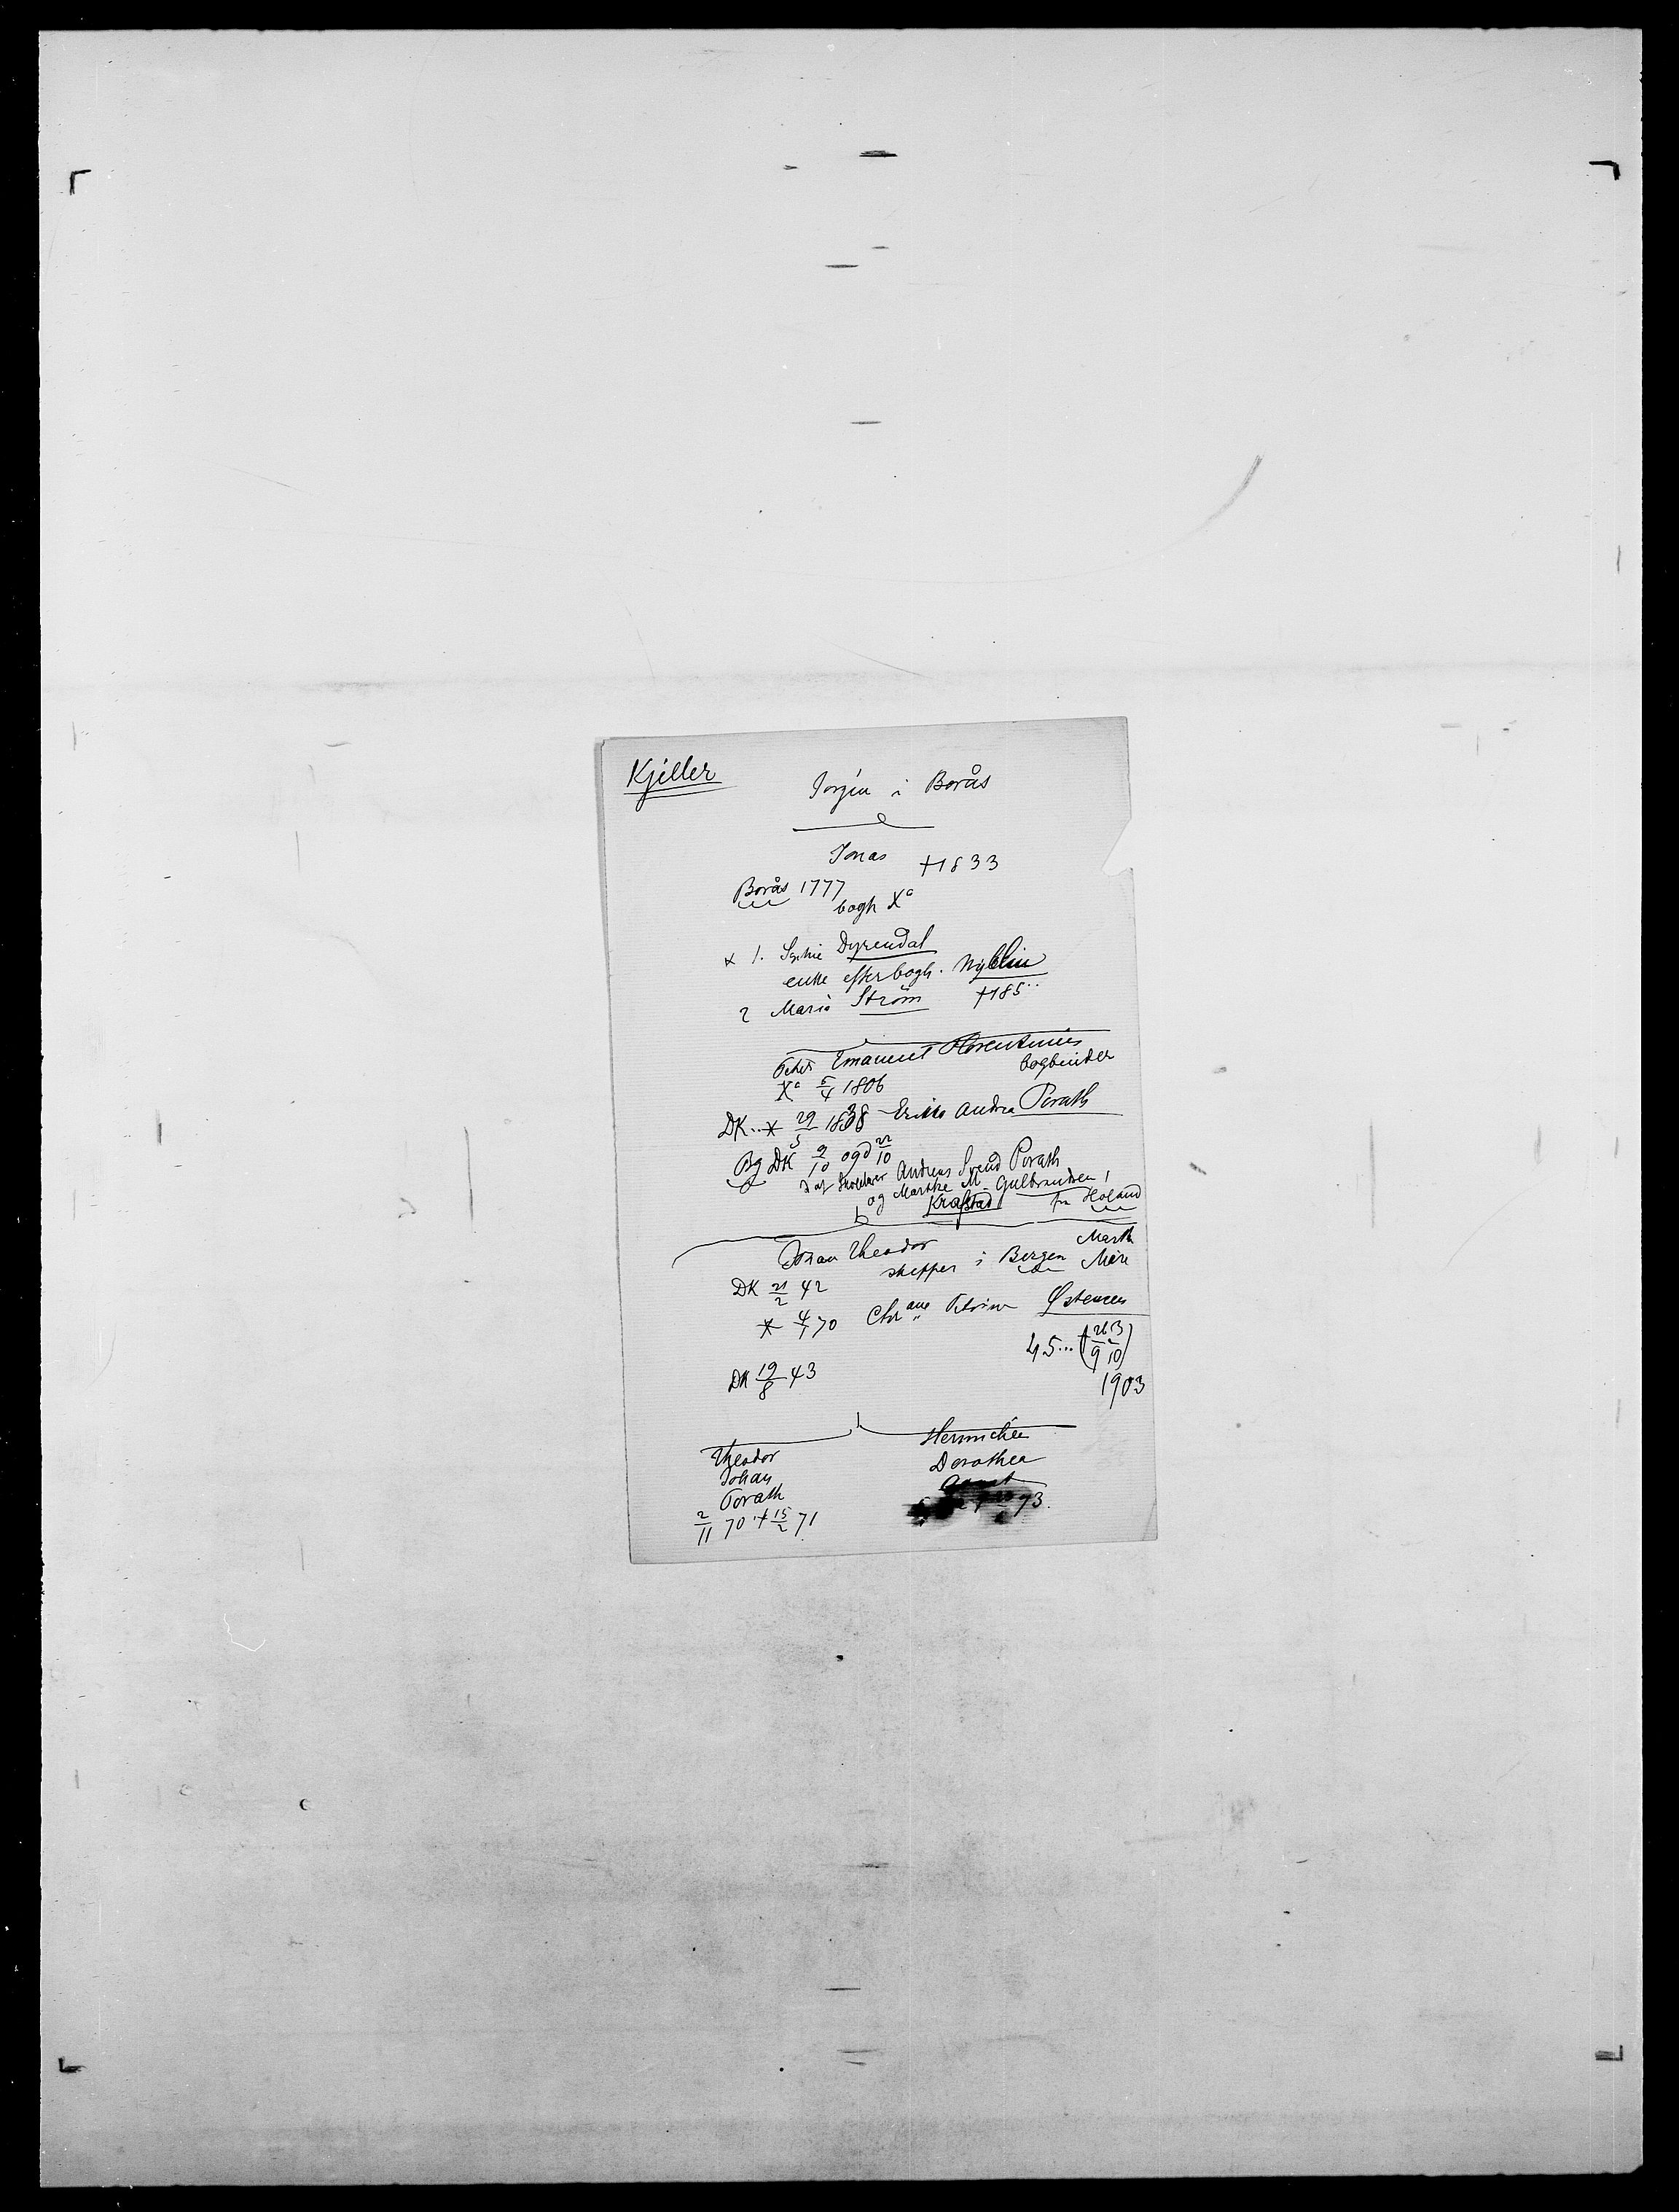 Kjeller
Jørgen i Borås
Jonas †1833
Borås 1777
bogh Xa
x 1. Sophie Dyrendal
enke efter bogh. Nyblin
2 Maria Ström †185..
Peter Emanuel Florentinus
bogbinder
Xa 5/4 1806
DK..* 29/5 1838 Andrea Porath
Bg DK 2/10 og d 22/10
d af Andreas Svend Porath
og Marthe M Gulbrandsen
Krafstad fra Høland
Johan Theodor
skipper i Bergen
Marth
DK 21/2 42
* 4/1 70 Chrane Petrine
45... (26/9 13/10)
1903
DK 19/8 43
Theodor
Johan
Porath
2/11 70 † 15/2 71
Dorothea
93.